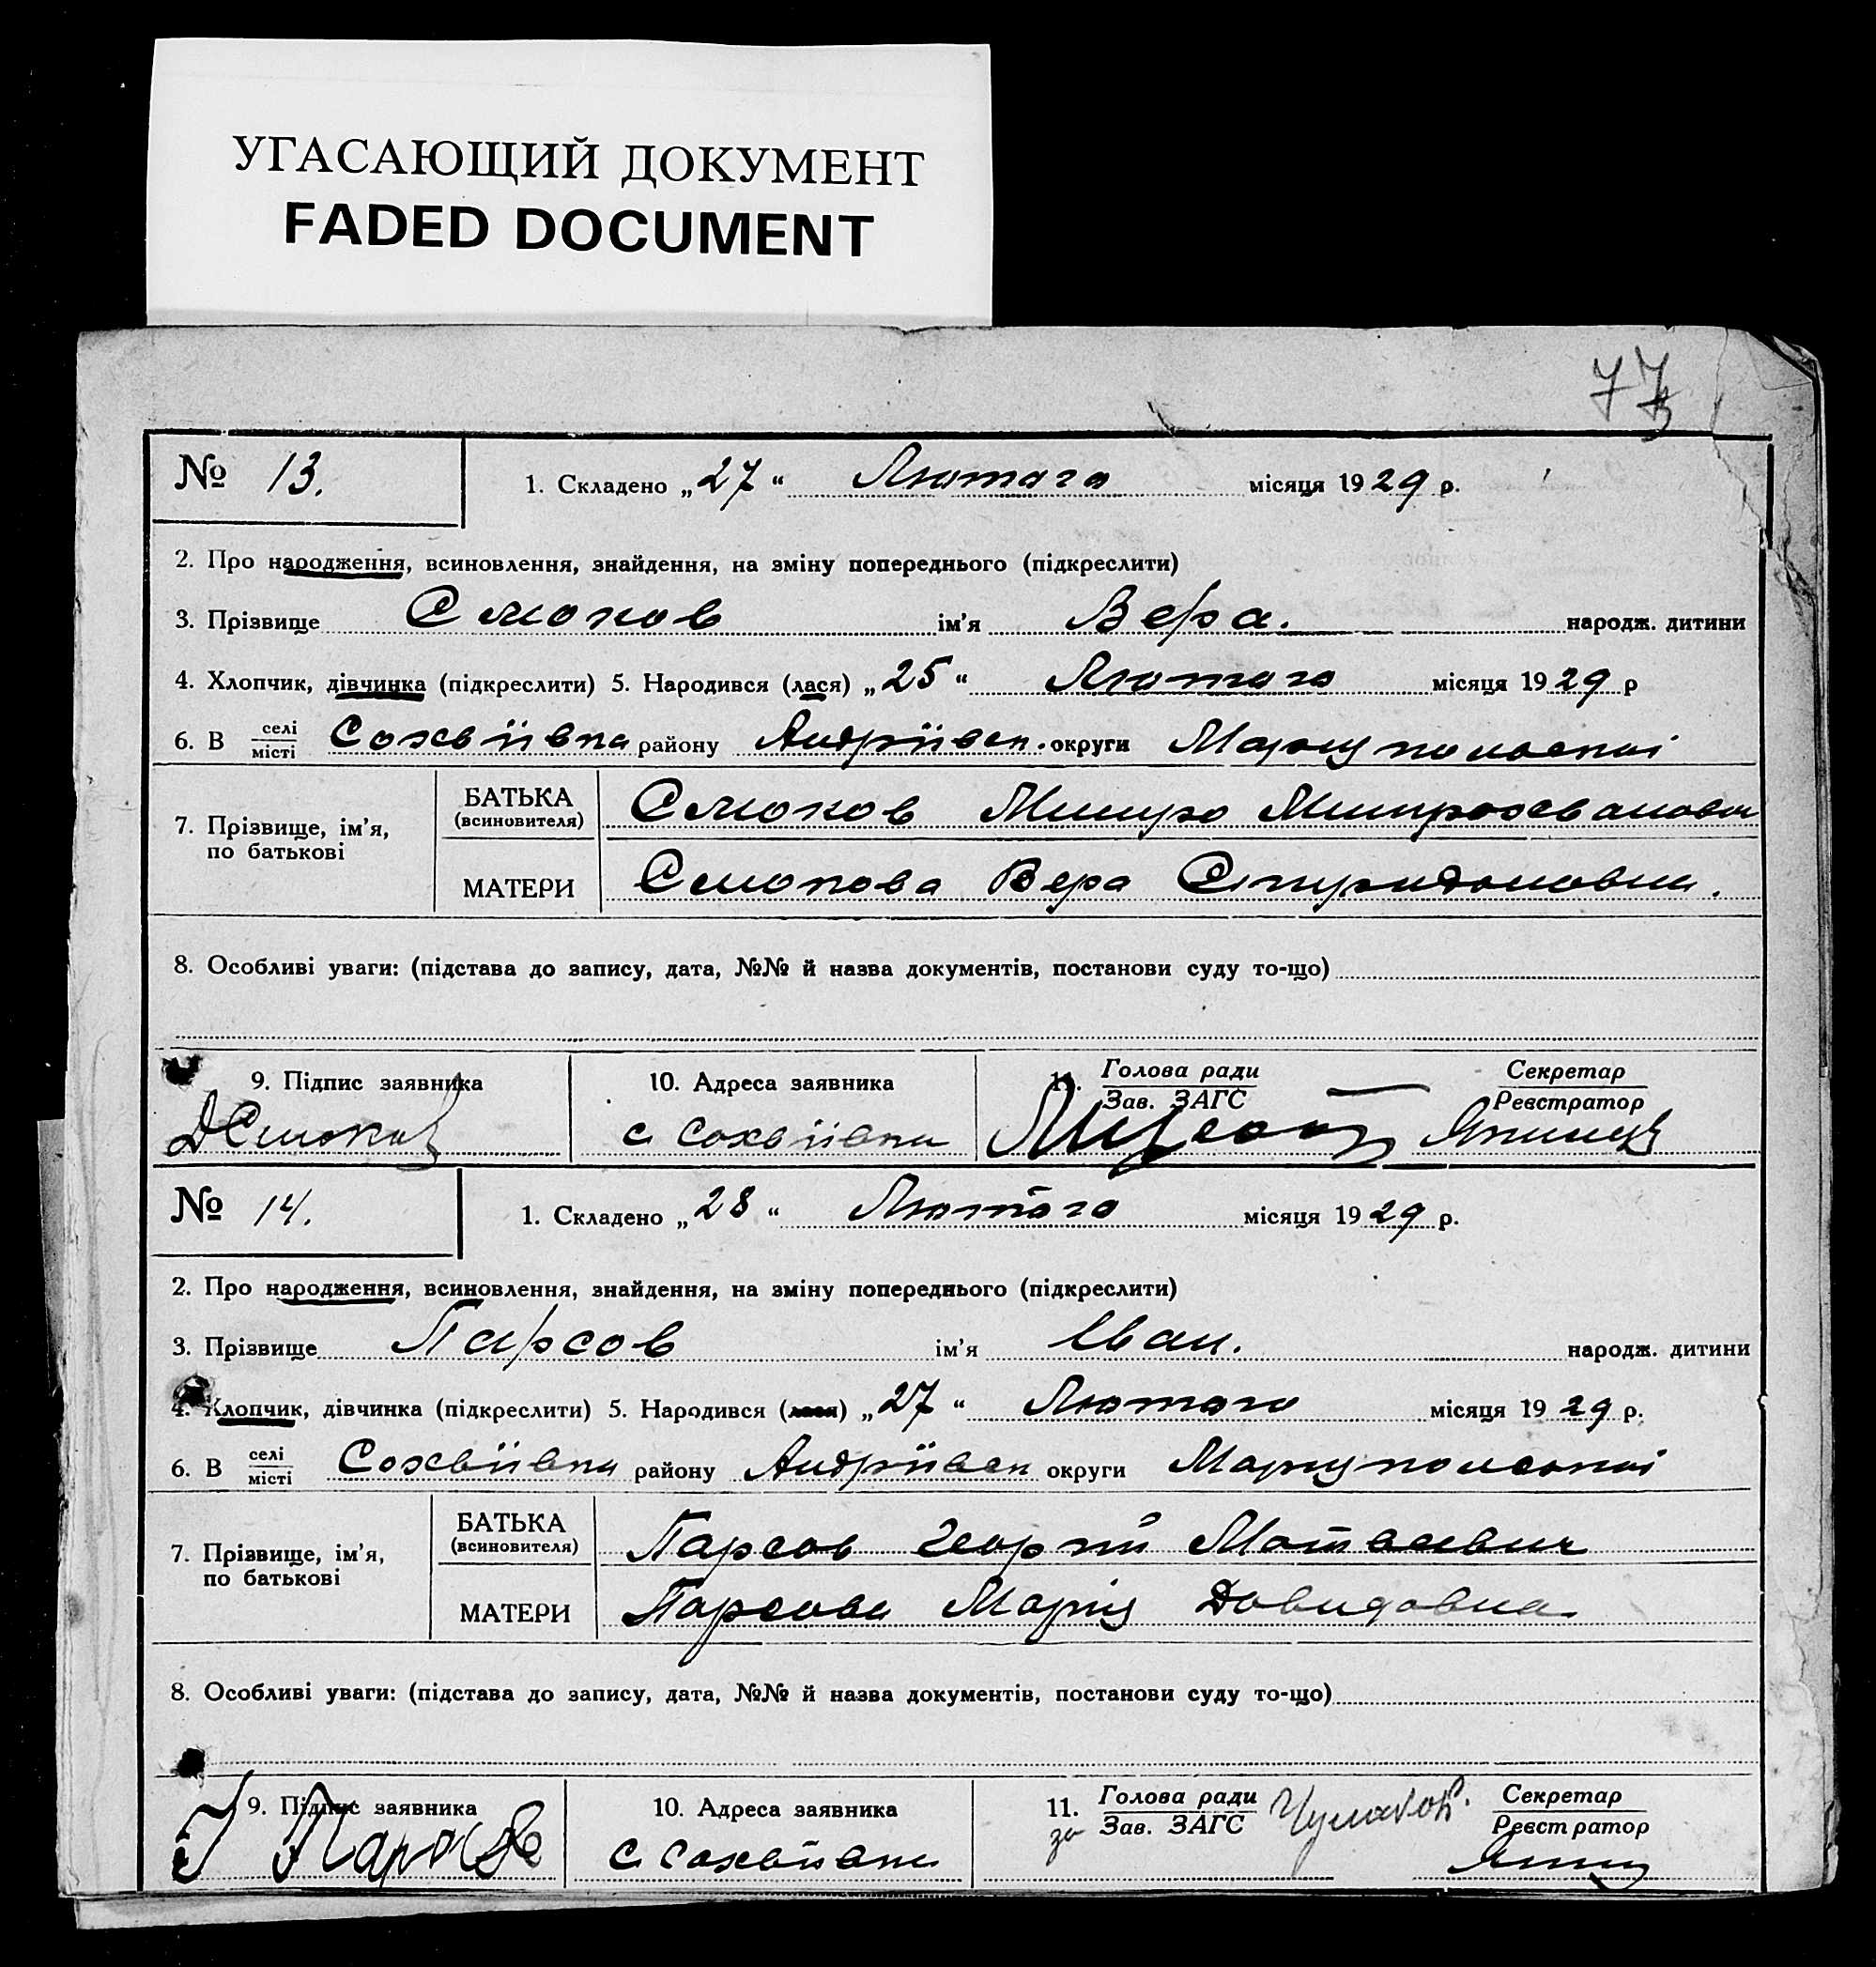 УГАСАЮЩИЙ ДОКУМЕНТ
FADED DOCUMENT
77
№ 13.
1. Складено „27“ Лютого місяця 1929 р.
2. Про народження, всиновлення, знайдення, на зміну попереднього (підкреслити)
3. Прізвище Смоков ім'я Вера. народж. дитини
4. Хлопчик, дівчинка (підкреслити) 5. Народився (лася) „25“ Лютого місяця 1929 р
6. В селі/місті Сохвіівка району Андріівск. округи Маріупольскоі
7. Прізвище, ім'я, по батькові
БАТЬКА (всиновителя) Смоков
МАТЕРИ Смокова Вера Спиридоновна.
8. Особливі уваги: (підстава до запису, дата, №№ й назва документів, постанови суду то-що)
9. Підпис заявника
10. Адреса заявника
11. Голова ради/Зав. ЗАГС
Секретар/Реєстратор
ДСмоков с Сохвіівка
№ 14.
1. Складено „28“ Лютого місяця 1929 р.
2. Про народження, всиновлення, знайдення, на зміну попереднього (підкреслити)
3. Прізвище Парсов ім'я Іван. народж. дитини
4. Хлопчик, дівчинка (підкреслити) 5. Народився (лася) „27“ Лютого місяця 1929 р.
6. В селі/місті Сохвіівка району Андріівск округи Маріупольскоі
7. Прізвище, ім'я, по батькові
БАТЬКА (всиновителя) Парсов Георгій Матвеевич
МАТЕРИ Парсова Марія Давидовна
8. Особливі уваги: (підстава до запису, дата, №№ й назва документів, постанови суду то-що)
9. Підпис заявника
10. Адреса заявника
11. Голова ради/Зав. ЗАГС
Секретар/Реєстратор
за Чумаков.
с Сохвіівка